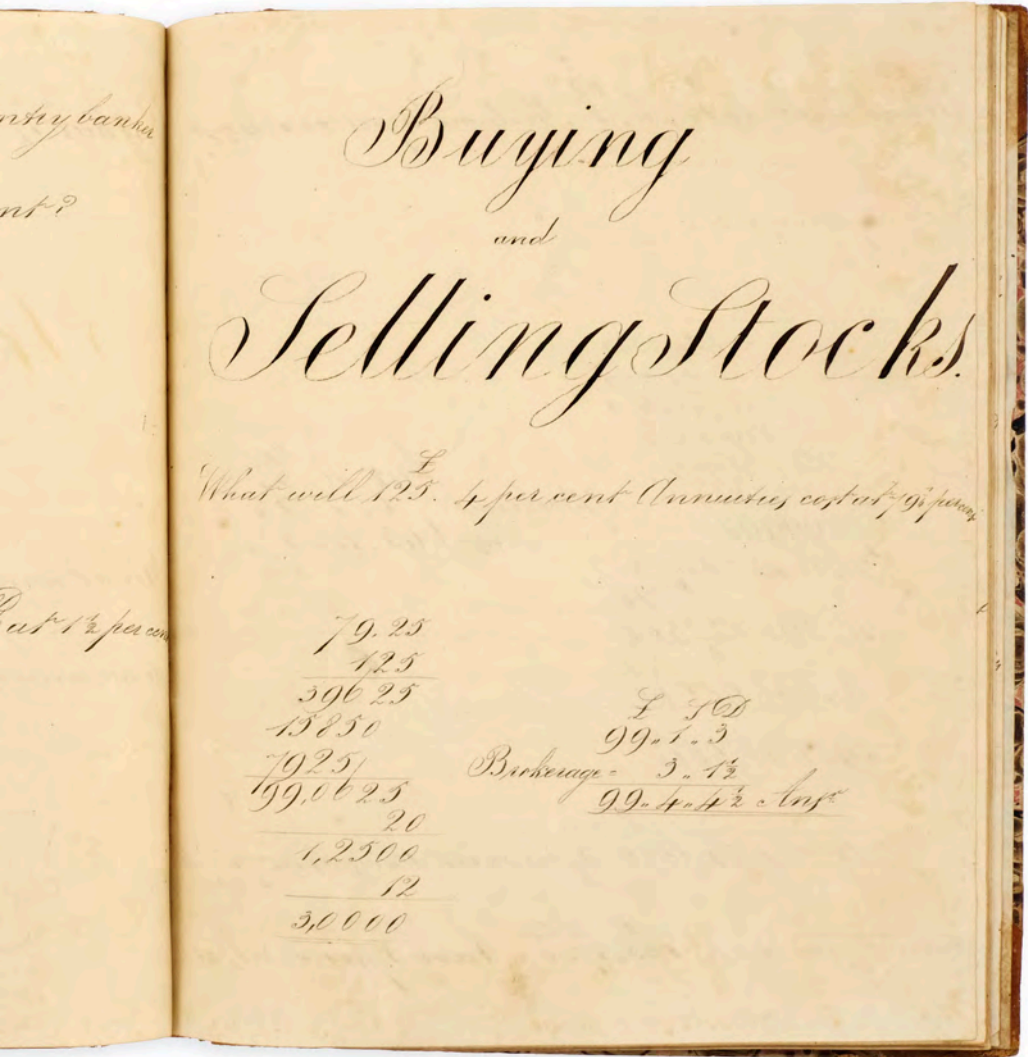 ntry banker
nt?
at 1½ per cent
Buying
and
Selling Stocks.
£
What will 125. 4 per cent Annuities cost at 79¼ per cent
79.25
125
396 25
15850
7925
99,0625
20
1,2500
12
3,0000
£ S D
99.. 1.. 3
Brokerage = 3.. 1½
99.. 4.. 4½ Ansr